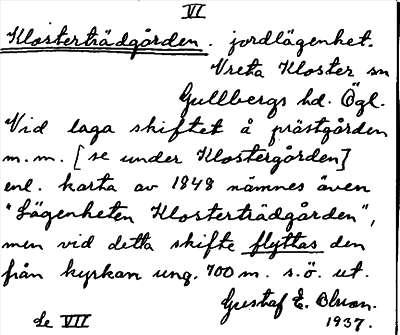 VI
Klosterträdgården. jordlägenhet.
Vreta Kloster sn
Gullbergs hd. Ögl.
Vid laga skiftet å prästgården
m.m. [se under Klostergården]
enl. karta av 1848 nämnes även
"Lägenheten Klosterträdgården",
men vid detta skifte flyttas den
från kyrkan ung. 700 m. s.ö. ut.
Gustaf E.
de VII 1937.